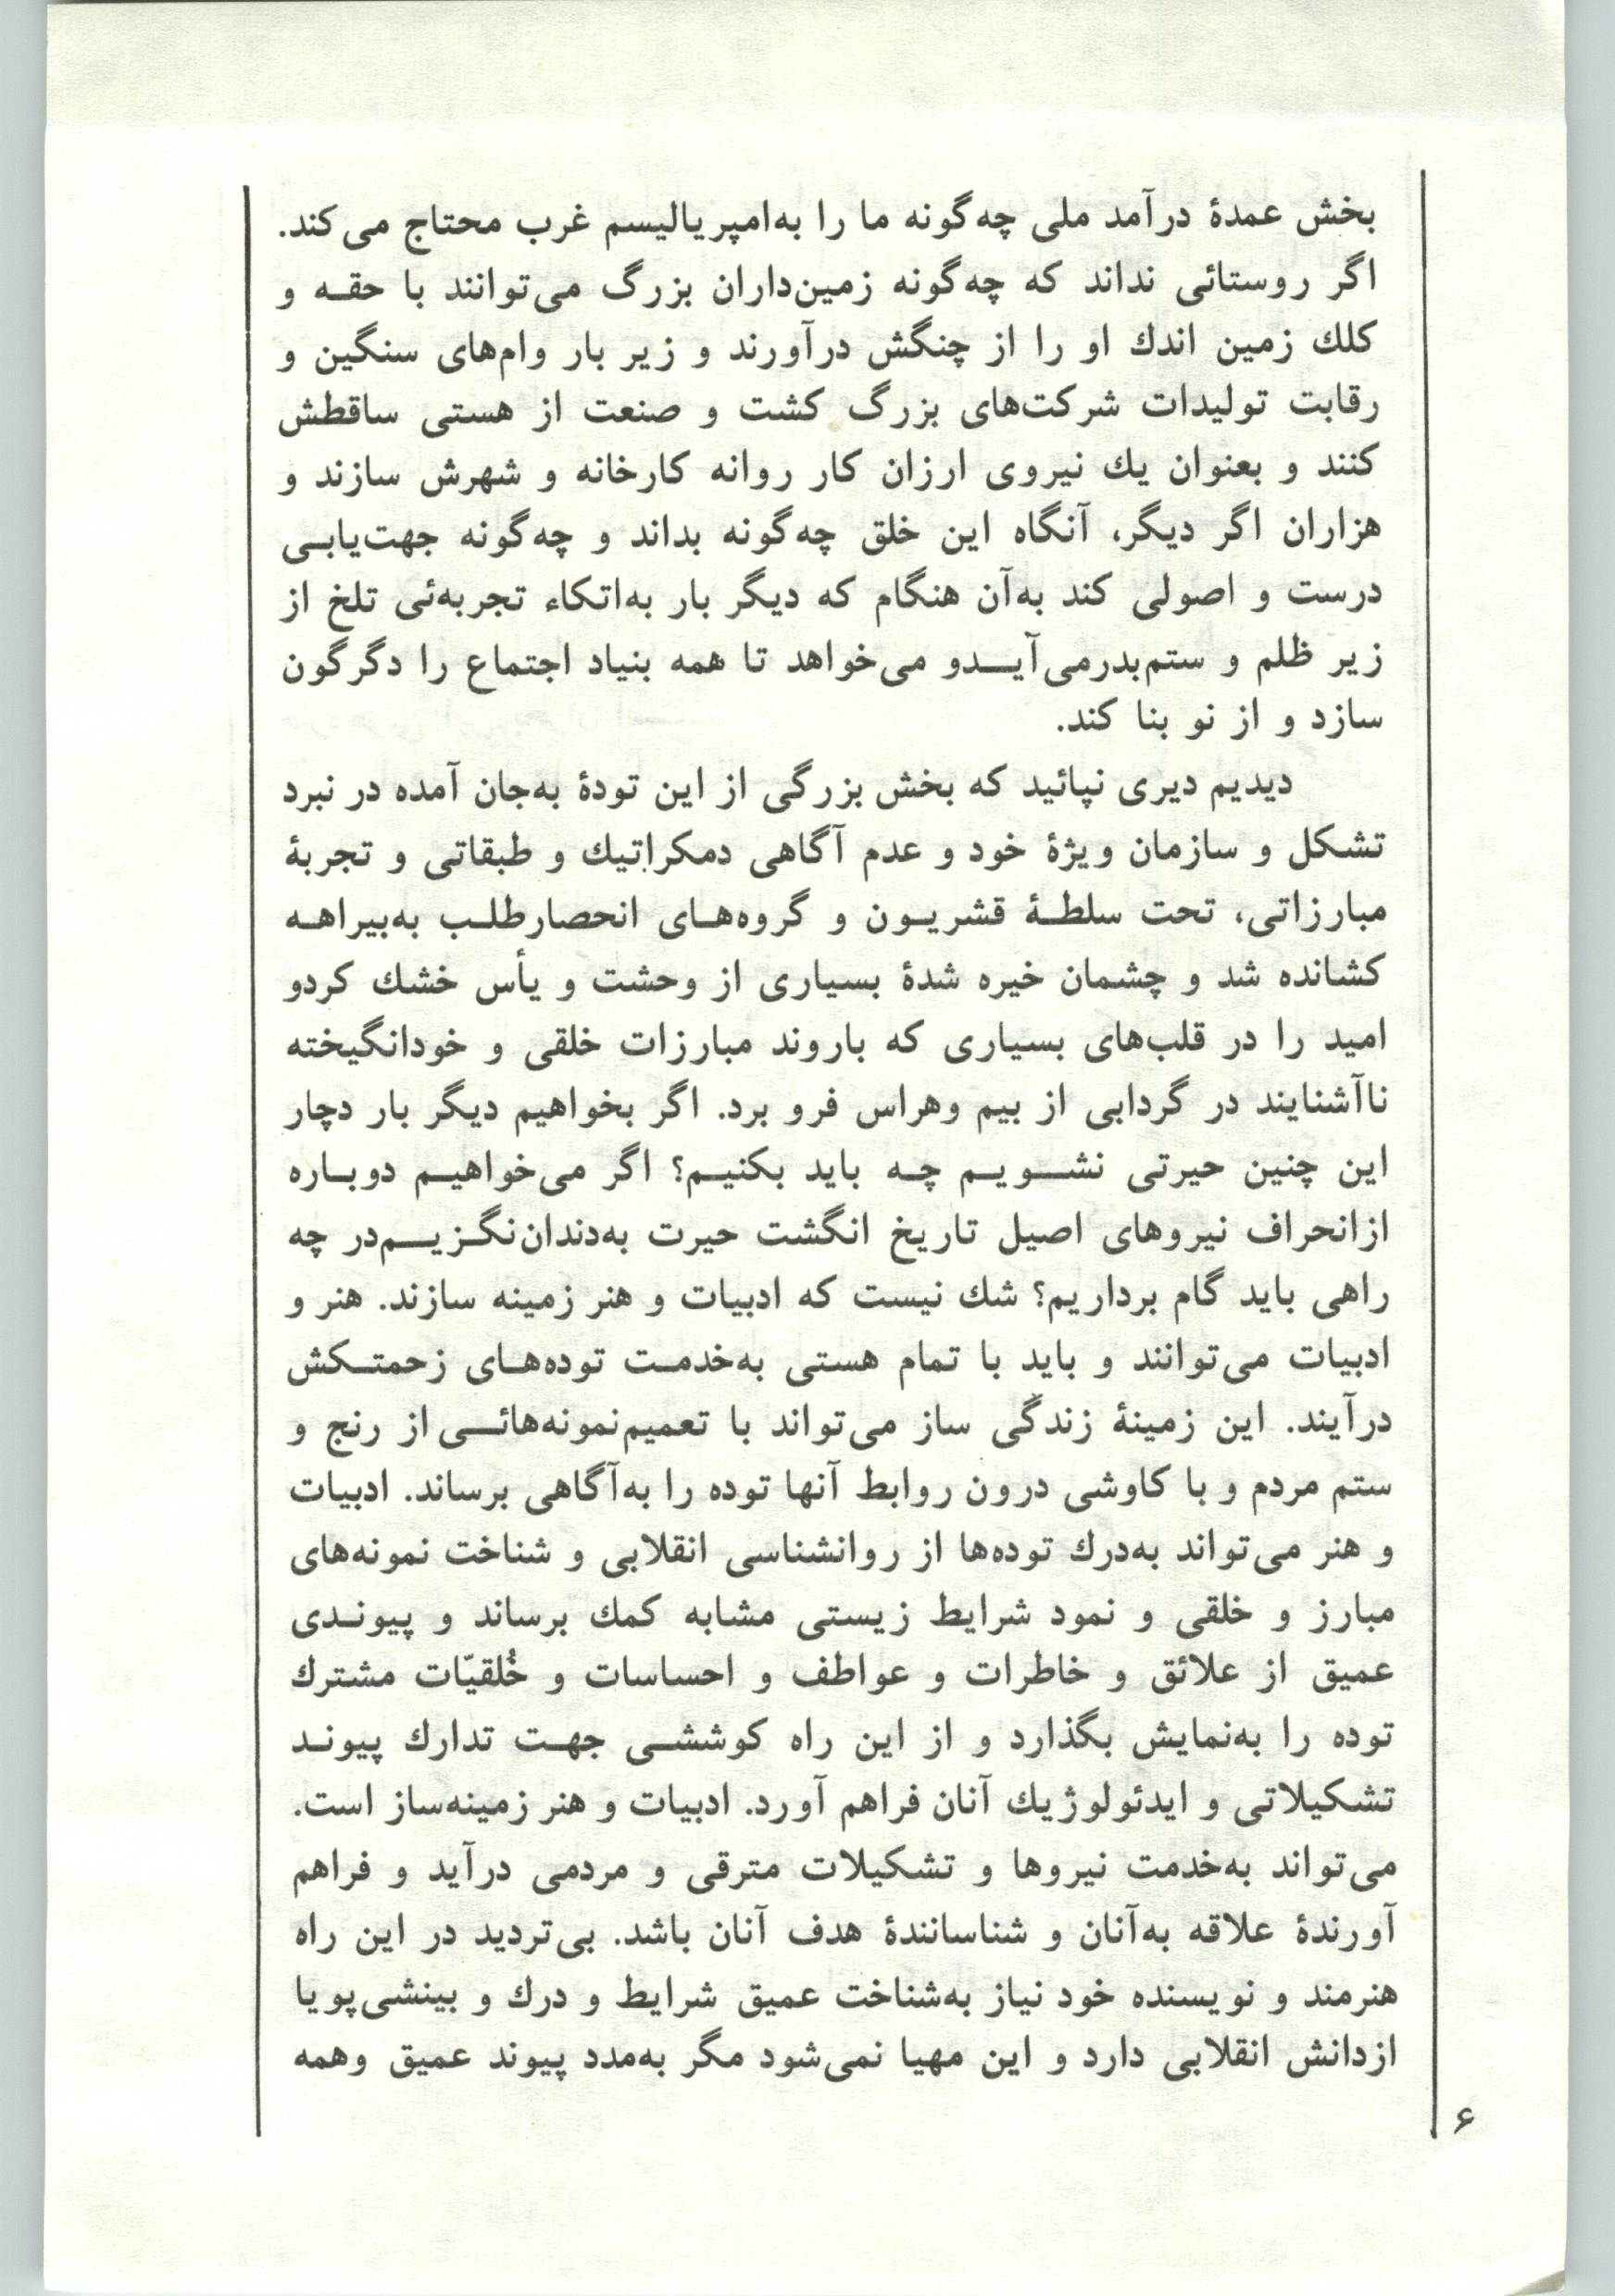 بخش عمدهٔ درآمد ملی چه‌گونه ما را به‌امپریالیسم غرب محتاج می‌کند.
اگر روستائی نداند که چه‌گونه زمین‌داران بزرگ می‌توانند با حقه و
کلك زمین اندك او را از چنگش درآورند و زیر بار وام‌های سنگین و
رقابت تولیدات شرکت‌های بزرگ کشت و صنعت از هستی ساقطش
کنند و بعنوان یك نیروی ارزان کار روانه کارخانه و شهرش سازند و
هزاران اگر دیگر، آنگاه این خلق چه‌گونه بداند و چه‌گونه جهت‌یابی
درست و اصولی کند به‌آن هنگام که دیگر بار به‌اتکاء تجربه‌ئی تلخ از
زیر ظلم و ستم‌بدرمی‌آیدو می‌خواهد تا همه بنیاد اجتماع را دگرگون
سازد و از نو بنا کند.
دیدیم دیری نپائید که بخش بزرگی از این تودهٔ به‌جان آمده در نبرد
تشکل و سازمان ویژهٔ خود و عدم آگاهی دمکراتیك و طبقاتی و تجربهٔ
مبارزاتی، تحت سلطهٔ قشریون و گروه‌های انحصارطلب به‌بیراهه
کشانده شد و چشمان خیره شدهٔ بسیاری از وحشت و یأس خشك کردو
امید را در قلب‌های بسیاری که باروند مبارزات خلقی و خودانگیخته
ناآشنایند در گردابی از بیم وهراس فرو برد. اگر بخواهیم دیگر بار دچار
این چنین حیرتی نشویم چه باید بکنیم؟ اگر می‌خواهیم دوباره
ازانحراف نیروهای اصیل تاریخ انگشت حیرت به‌دندان‌نگزیم‌در چه
راهی باید گام برداریم؟ شك نیست که ادبیات و هنر زمینه سازند. هنر و
ادبیات می‌توانند و باید با تمام هستی به‌خدمت توده‌های زحمتکش
درآیند. این زمینهٔ زندگی ساز می‌تواند با تعمیم‌نمونه‌هائی از رنج و
ستم مردم و با کاوشی درون روابط آنها توده را به‌آگاهی برساند. ادبیات
و هنر می‌تواند به‌درك توده‌ها از روانشناسی انقلابی و شناخت نمونه‌های
مبارز و خلقی و نمود شرایط زیستی مشابه کمك برساند و پیوندی
عمیق از علائق و خاطرات و عواطف و احساسات و خُلقیّات مشترك
توده را به‌نمایش بگذارد و از این راه کوششی جهت تدارك پیوند
تشکیلاتی و ایدئولوژیك آنان فراهم آورد. ادبیات و هنر زمینه‌ساز است.
می‌تواند به‌خدمت نیروها و تشکیلات مترقی و مردمی درآید و فراهم
آورندهٔ علاقه به‌آنان و شناسانندهٔ هدف آنان باشد. بی‌تردید در این راه
هنرمند و نویسنده خود نیاز به‌شناخت عمیق شرایط و درك و بینشی‌پویا
ازدانش انقلابی دارد و این مهیا نمی‌شود مگر به‌مدد پیوند عمیق وهمه
۶